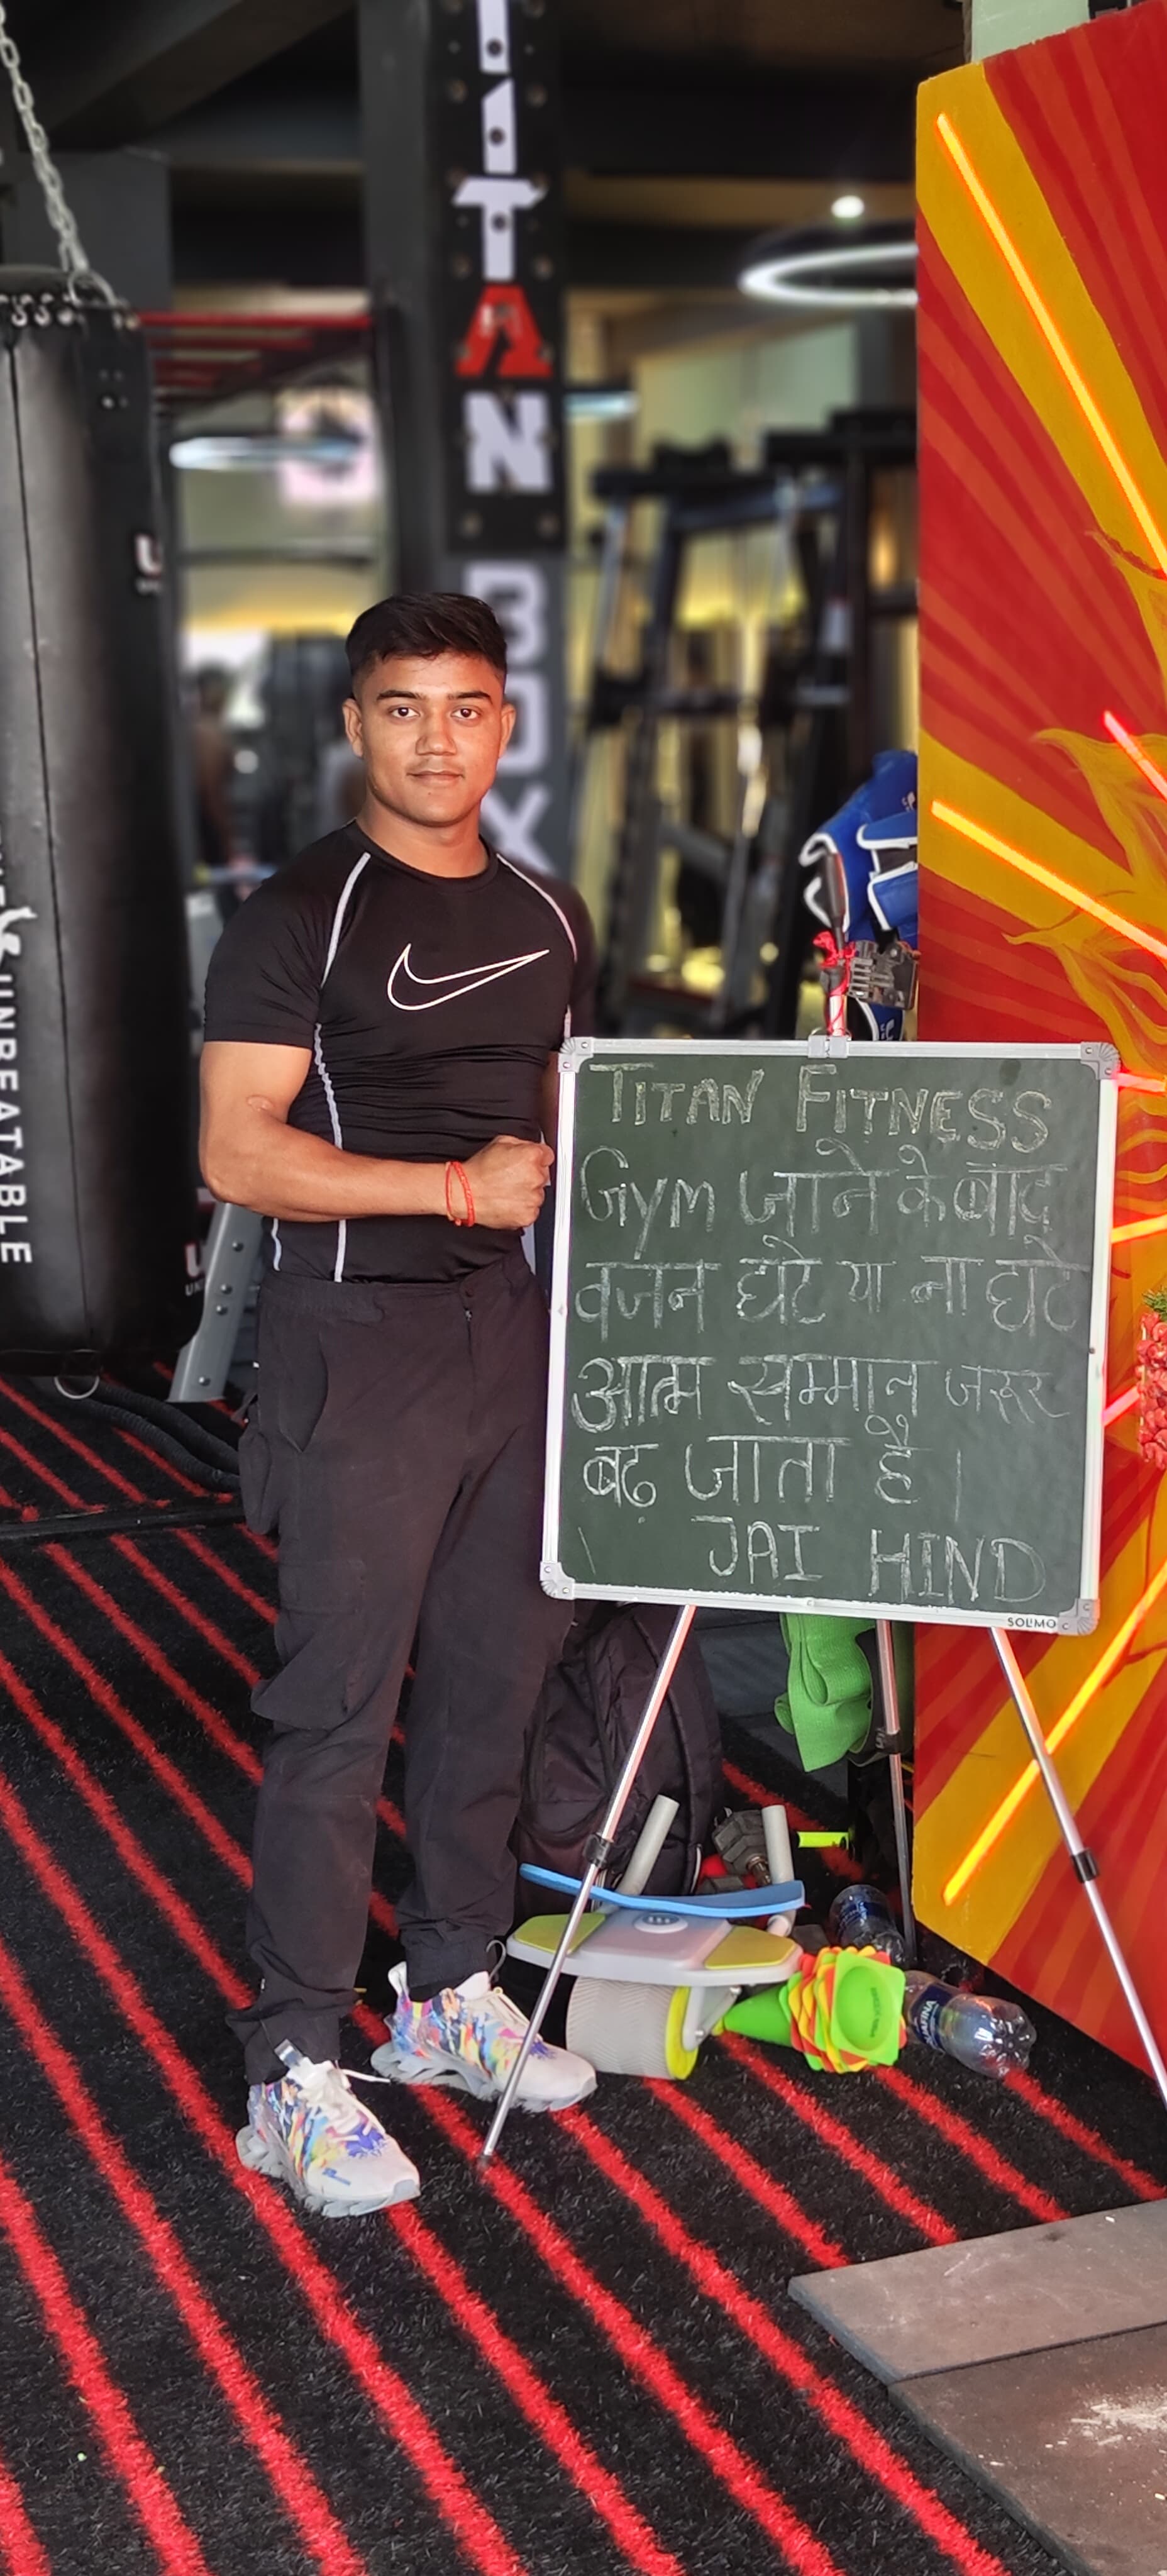 TITAN
BOX
UNBEATABLE
TITAN FITNESS
Gym जाने के बाद
वजन घटे या ना घटे
आत्म सम्मान जरूर
बढ़ जाता है।
JAI HIND
SOLIMO